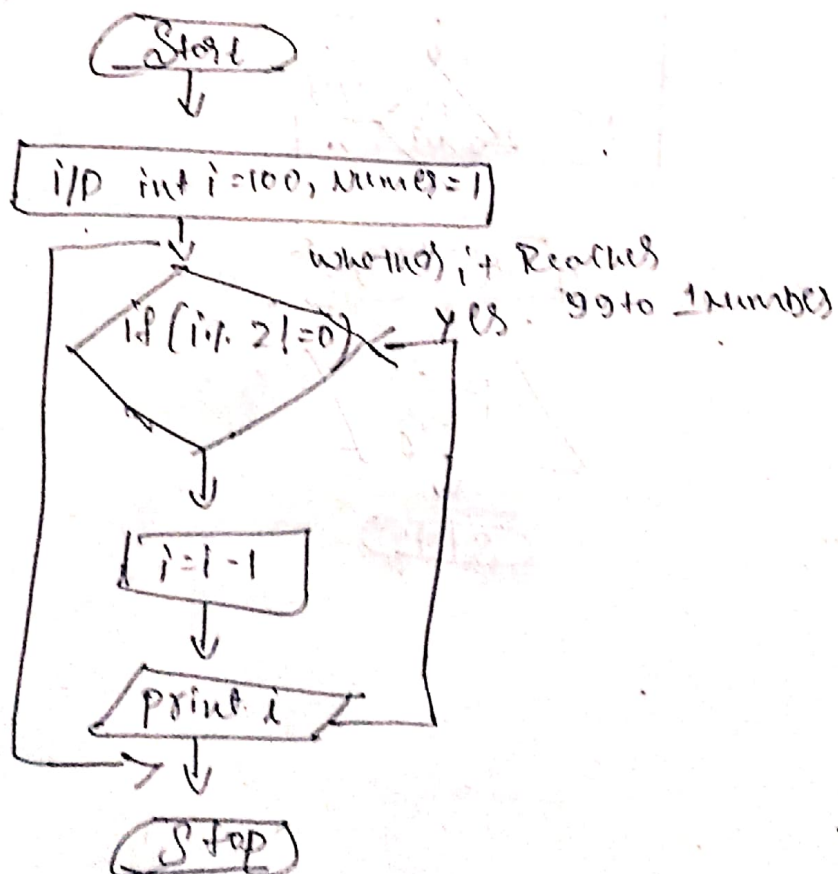 Start
i/p int i=100, Number=1
whether it Reaches
99 to 1 Number
if (i% 2!=0)
Yes
i=i-1
print i
Stop